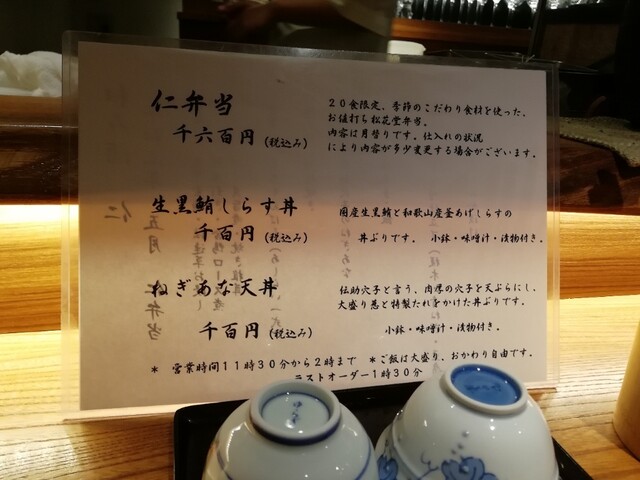 仁弁当
千六百円(税込み)
20食限定、季節のこだわり食材を使った、
お値打ち松花堂弁当。
内容は月替りです。仕入れの状況
により内容が多少変更する場合がございます。
生黒鮪しらす丼
千百円(税込み)
国産生黒鮪と和歌山産釜あげしらすの
丼ぶりです。 小鉢・味噌汁・漬物付き。
ねぎあな天丼
千百円(税込み)
伝助穴子と言う、肉厚の穴子を天ぷらにし、
大盛り葱と特製たれをかけた丼ぶりです。
小鉢・味噌汁・漬物付き。
* 営業時間11時30分から2時まで *ご飯は大盛り、おかわり自由です。
ラストオーダー1時30分